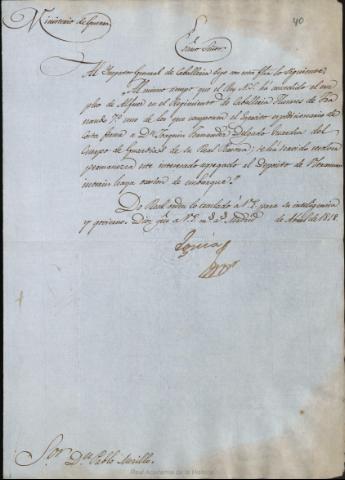 Ministerio de Guerra
40
Exmo. Señor.
Al Inspector General de Caballeria digo con esta fha. lo siguiente
Al mismo tiempo que el Rey N. S. ha concedido el em
pleo de Alferez en el Regimiento de Caballeria Husares de Fer
nando 7.º uno de los que componen el Ejercito expedicionario de
Costa firme a Dn. Joaquin Fernandez Delgado Guardia del
Cuerpo de Guardias de su Real Persona; se ha servido resolver
permanezca este interesado agregado al Deposito de Ultramar
haya ocasion de embarque.
De Real orden lo traslado a V.E. para su inteligencia
y gobierno. Dios gue. a V.E. ms. as. Madrid de Abril de 1818.
Eguia
Sor. Dn. Pablo Morillo.
Real Academia de la Historia